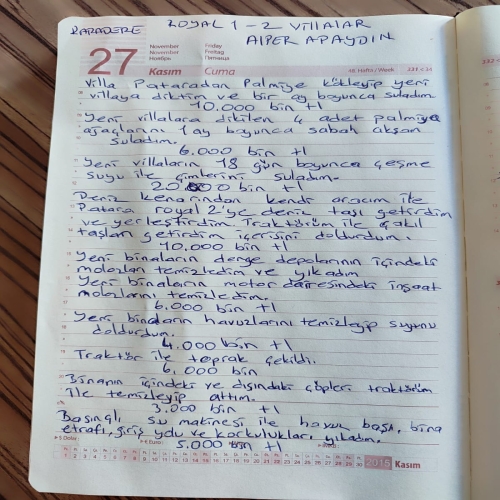 KARADERE ROYAL 1-2 VİLLALAR
ALPER APAYDIN
27
November Friday
November Freitag
Ноябрь Пятница
Kasım Cuma
48. Hafta / Week
Villa Pataradan Palmiye kökleyip yeni
villaya diktim ve bir ay boyunca suladım
10.000 bin tl
Yeni villalara dikilen 4 adet palmiye
ağaçlarını 1 ay boyunca sabah akşam
suladım.
6.000 bin tl
Yeni villaların 18 gün boyunca çeşme
suyu ile çimlerini suladım.
20 000 bin tl
Deniz kenarından kendi aracım ile
Patara royal 2'ye deniz taşı getirdim
ve yerleştirdim. Traktörüm ile çakıl
taşları getirdim içerisini doldurdum.
10.000 bin tl
Yeni binaların denge depolarının içindeki
molozları temizledim ve yıkadım
Yeni binaların motor dairesindeki inşaat
molozlarını temizledim.
6.000 bin tl
Yeni binaların havuzlarını temizleyip suyunu
doldurdum.
4.000 bin tl
Traktör ile toprak çekildi.
6.000 bin
Binanın içindeki ve dışındaki çöpleri traktörüm
ile temizleyip attım.
3.000 bin tl
Basınçlı su makinesi ile havuz başı, bina
etrafı, giriş yolu ve korkulukları yıkadım.
5.000 bin tl
$ Dolar: € Euro:
1 2 3 4 5 6 7 8 9 10 11 12 13 14 15 16 17 18 19 20 21 22 23 24 25 26 27 28 29 30 2015 Kasım